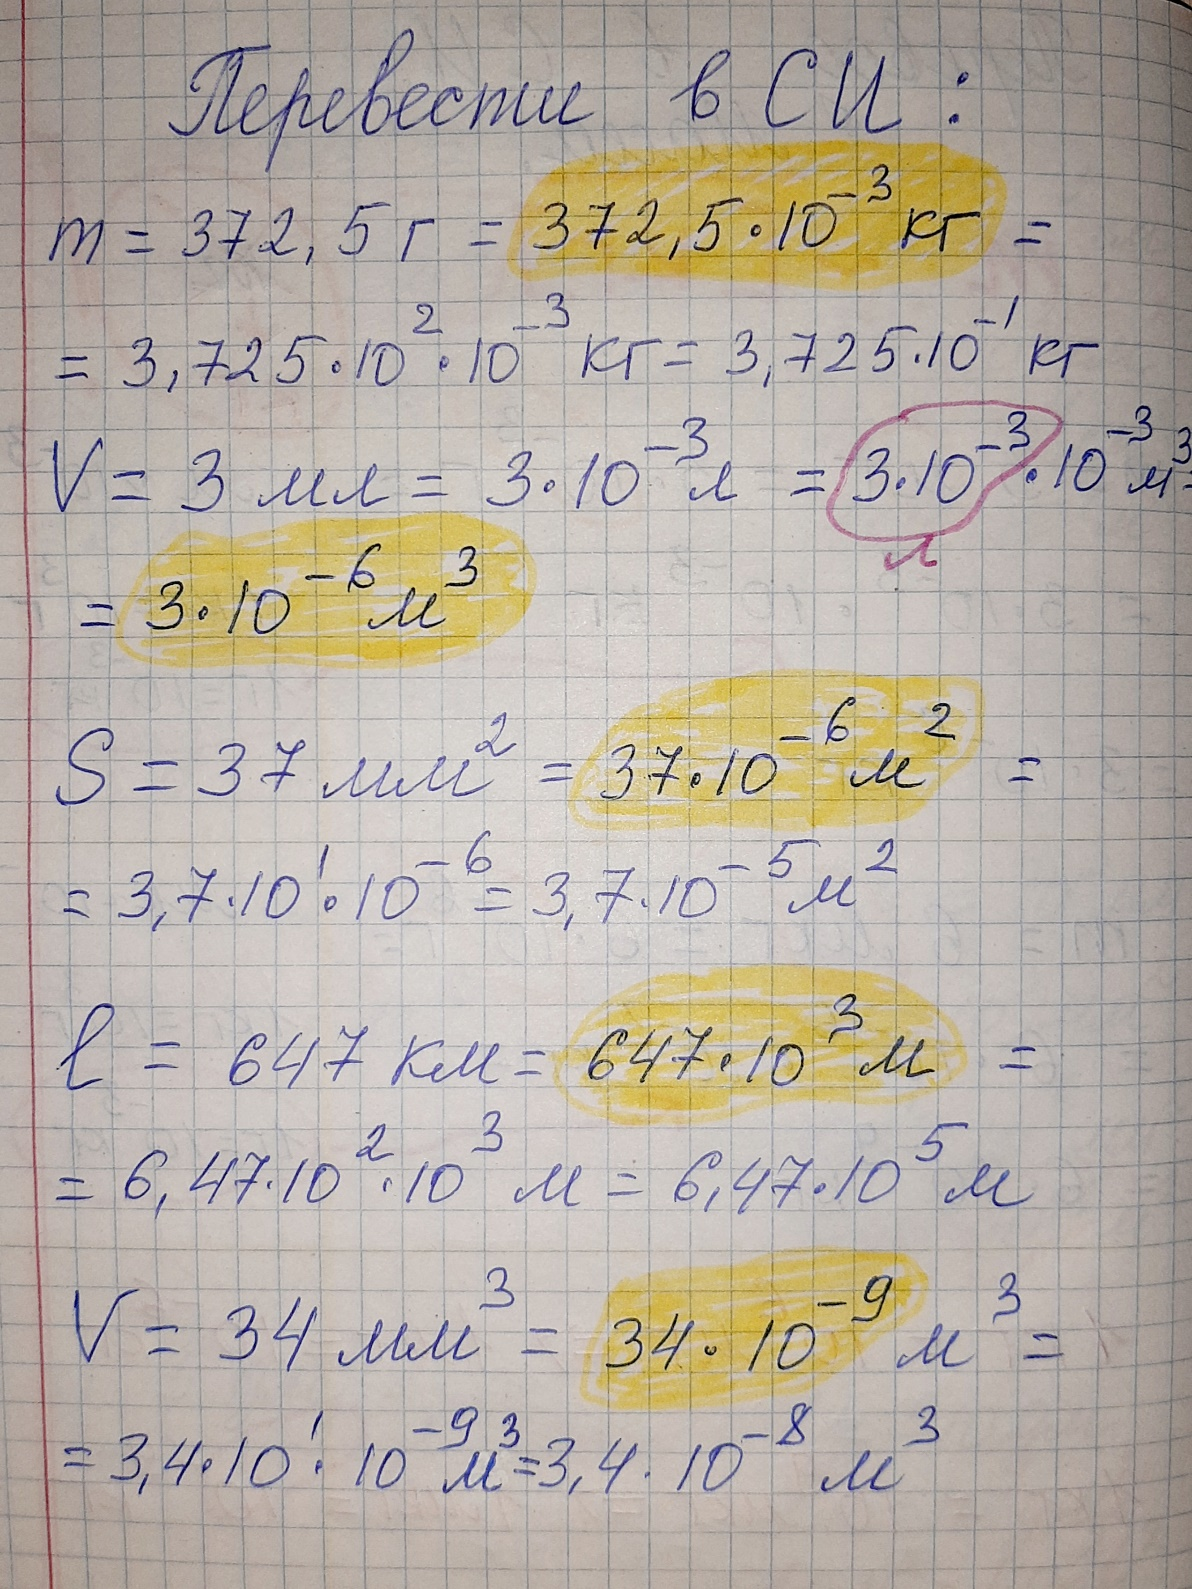 Перевести в СИ:
m = 372,5 г = 372,5·10⁻³ кг =
= 3,725·10²·10⁻³ кг = 3,725·10⁻¹ кг
V = 3 мл = 3·10⁻³ л = 3·10⁻³·10⁻³ м³ =
л
= 3·10⁻⁶ м³
S = 37 мм² = 37·10⁻⁶ м² =
= 3,7·10¹·10⁻⁶ = 3,7·10⁻⁵ м²
l = 647 км = 647·10³ м =
= 6,47·10²·10³ м = 6,47·10⁵ м
V = 34 мм³ = 34·10⁻⁹ м³ =
= 3,4·10¹·10⁻⁹ м³ = 3,4·10⁻⁸ м³